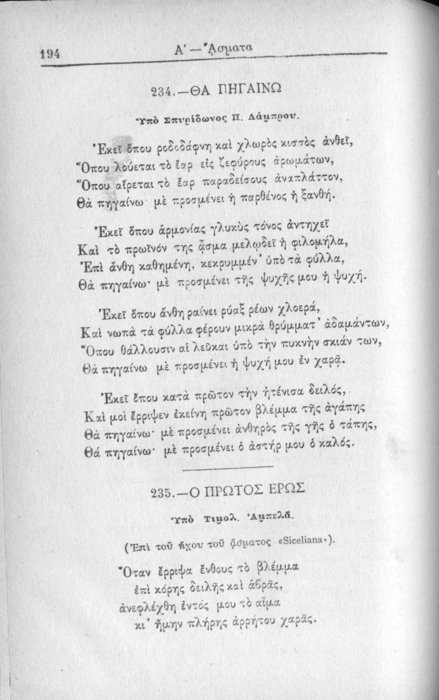 194
Α′ — ᾌσματα
234.—ΘΑ ΠΗΓΑΙΝΩ
Ὑπὸ Σπυρίδωνος Π. Λάμπρου.
Ἐκεῖ ὅπου ῥοδοδάφνη καὶ χλωρὸς κισσὸς ἀνθεῖ,
Ὅπου λούεται τὸ ἔαρ εἰς ζεφύρους ἀρωμάτων,
Ὅπου αἴρεται τὸ ἔαρ παραδείσους ἀναπλάττον,
Θὰ πηγαίνω· μὲ προσμένει ἡ παρθένος ἡ ξανθή.
Ἐκεῖ ὅπου ἁρμονίας γλυκὺς τόνος ἀντηχεῖ
Καὶ τὸ πρωϊνόν της ᾆσμα μελωδεῖ ἡ φιλομήλα,
Ἐπὶ ἄνθη καθημένη, κεκρυμμέν' ὑπὸ τὰ φύλλα,
Θὰ πηγαίνω· μὲ προσμένει τῆς ψυχῆς μου ἡ ψυχή.
Ἐκεῖ ὅπου ἄνθη ραίνει ρύαξ ρέων χλοερά,
Καὶ νωπὰ τὰ φύλλα φέρουν μικρὰ θρύμματ' ἀδαμάντων,
Ὅπου θάλλουσιν αἱ λεῦκαι ὑπὸ τὴν πυκνὴν σκιάν των,
Θὰ πηγαίνω· μὲ προσμένει ἡ ψυχή μου ἐν χαρᾷ.
Ἐκεῖ ὅπου κατὰ πρῶτον τὴν ἠτένισα δειλός,
Καὶ μοὶ ἔρριψεν ἐκείνη πρῶτον βλέμμα τῆς ἀγάπης
Θὰ πηγαίνω· μὲ προσμένει ἀνθηρὸς τῆς γῆς ὁ τάπης,
Θὰ πηγαίνω· μὲ προσμένει ὁ ἀστήρ μου ὁ καλός.
235.—Ο ΠΡΩΤΟΣ ΕΡΩΣ
Ὑπὸ Τιμολ. Ἀμπελᾶ.
(Ἐπὶ τοῦ ἤχου τοῦ ᾄσματος «Siceliana»).
Ὅταν ἔρριψα ἔνθους τὸ βλέμμα
ἐπὶ κόρης δειλῆς καὶ ἁβρᾶς,
ἀνεφλέχθη ἐντός μου τὸ αἷμα
κι' ἤμην πλήρης ἀρρήτου χαρᾶς.